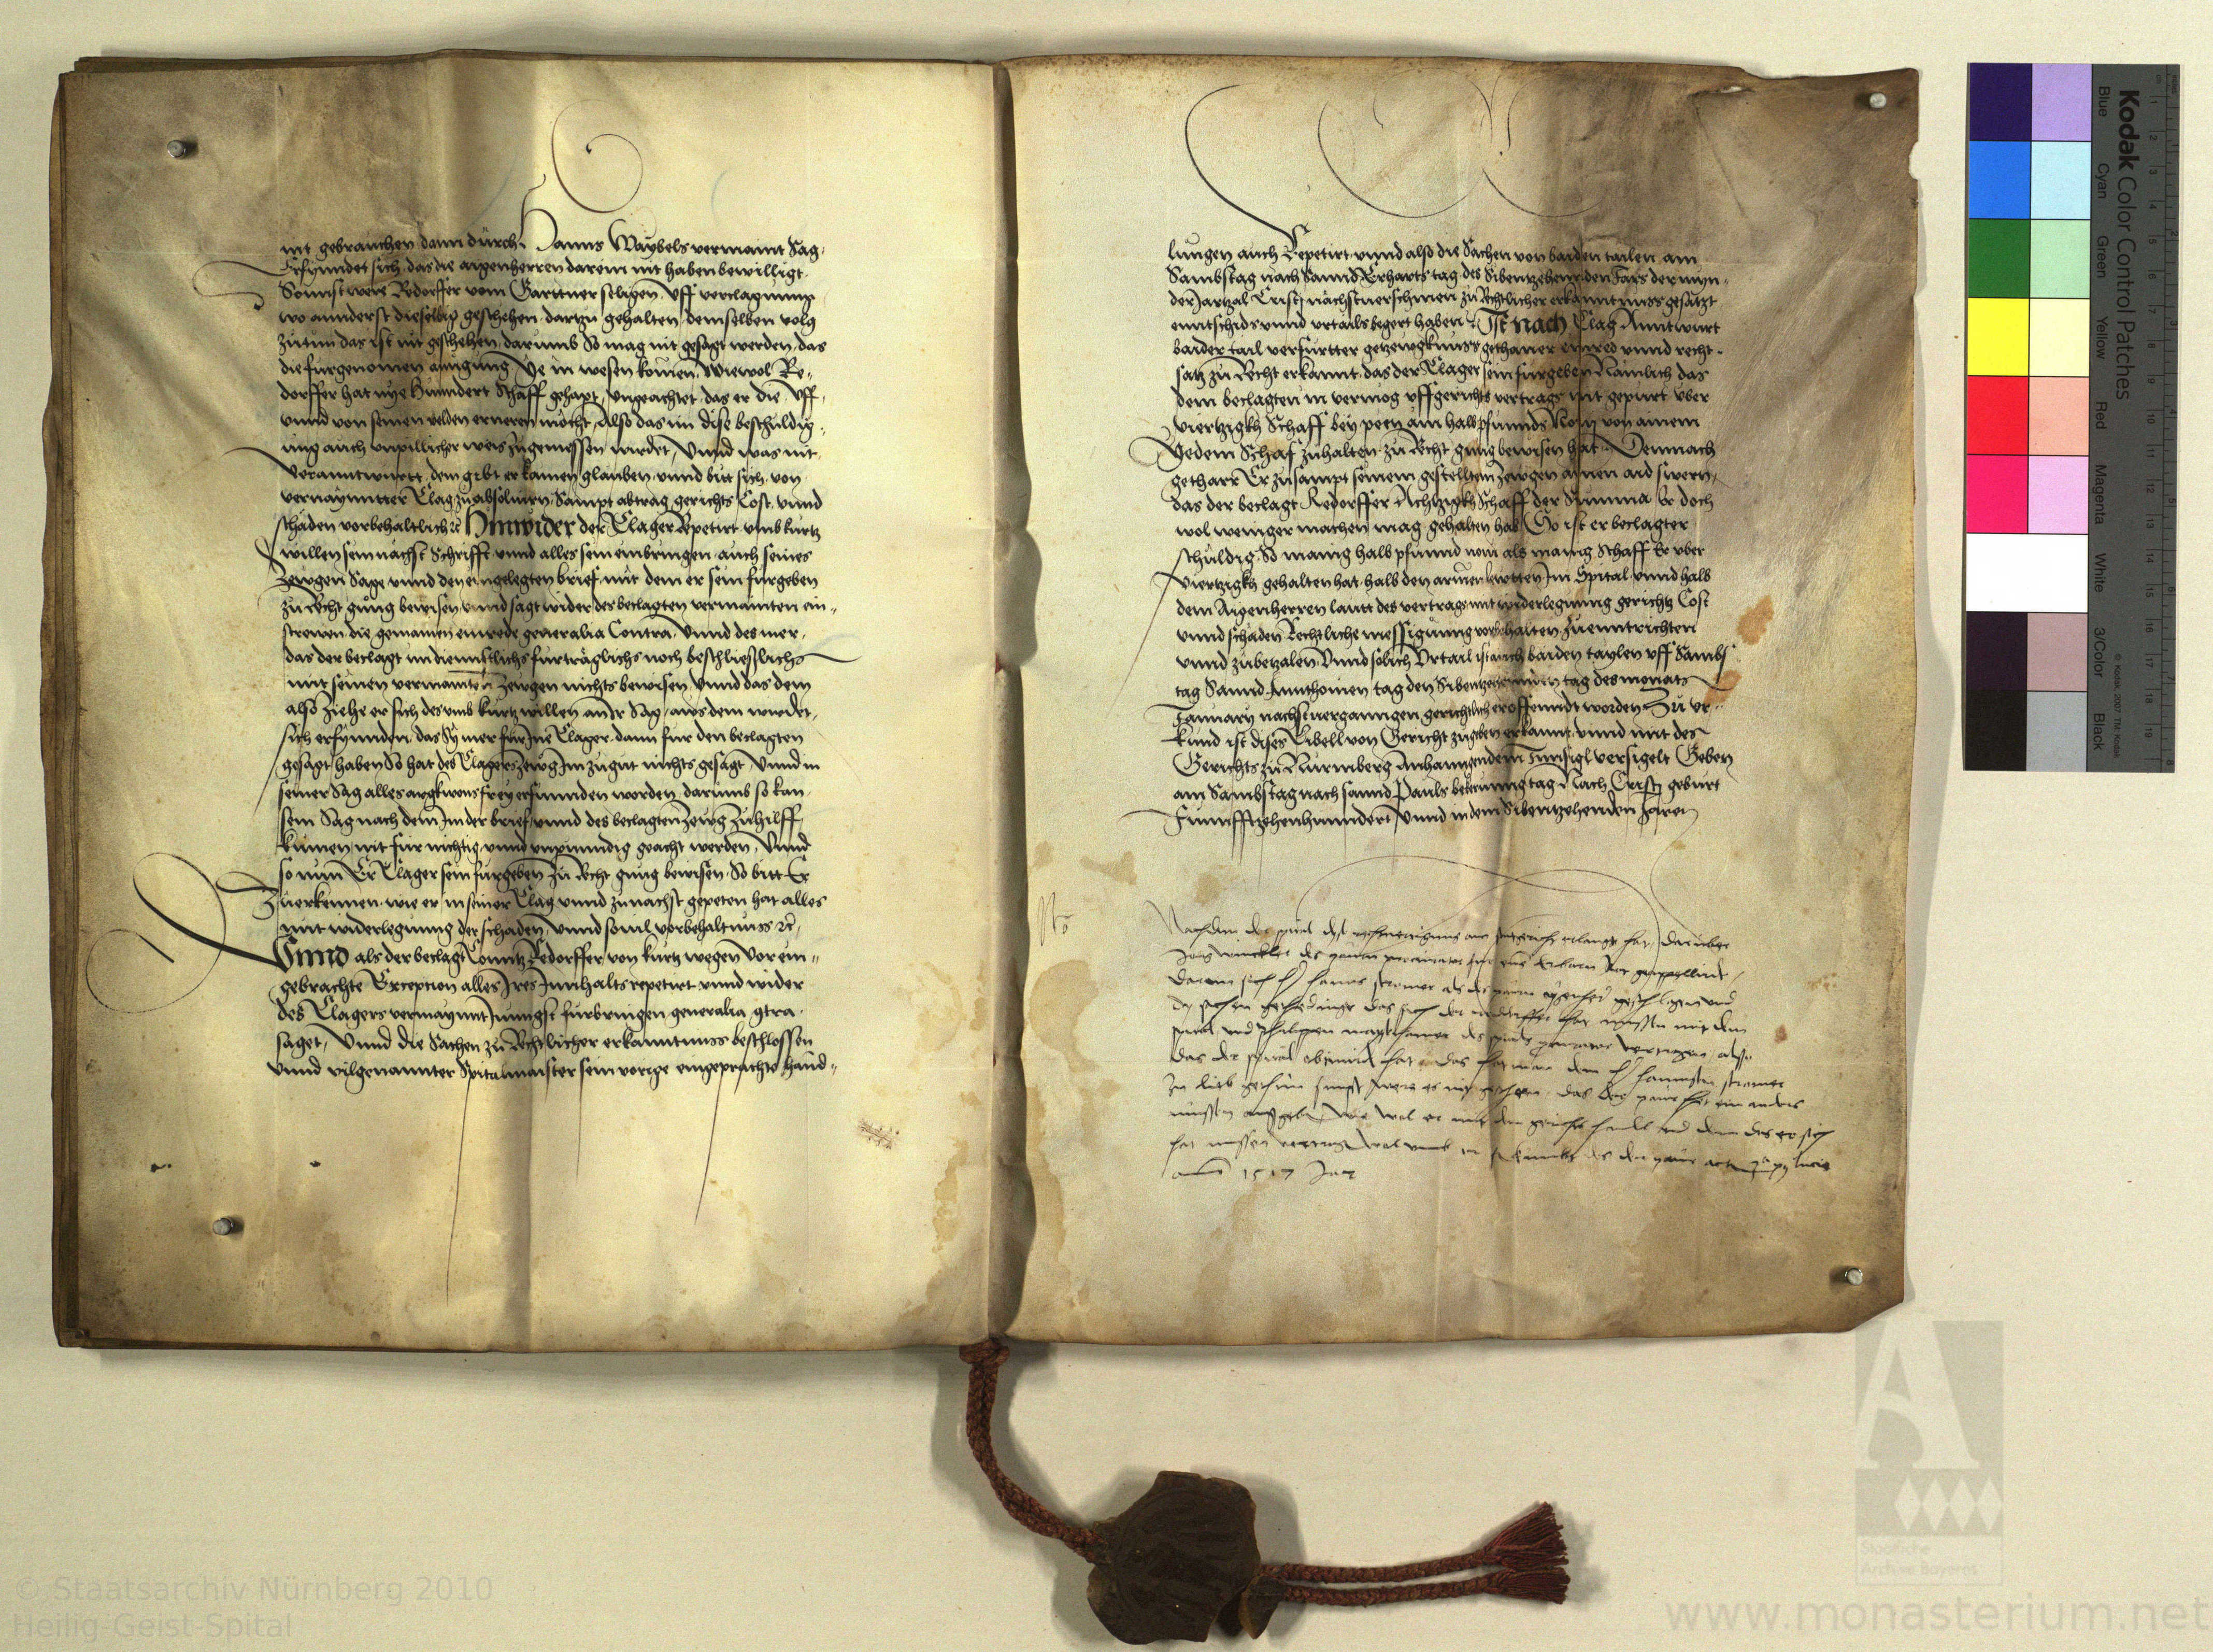 nit gebrauchen dann durch Hanns Waybels vermaint Sag
Erfynndet sich das die aigenherren darein nit haben bewilligt
Sonnst were Redorffer vom Garttner seligen vff verclagnung
wo annderst dieselbig geschehen dartzu gehalten demselben volg
zutun das ist nit geschehen darumb So mag nit gesagt werden das
die furgenomen ainigung Ye in wesen komen Wiewol Re-
dorffer hat nye Hundert Schaff gehapt vngeachtet das er die vff
vnnd von seinen velden erneren mocht Also das im dise beschuldig-
ung auch vnpillicher weis zugemessen wirdet Vnnd was nit
verantwurtt dem gibt er kainen glauben vnnd bitt sich von
vermaynnter Clag zuabsoluirn Sampt abtrag gerichts Cost vnnd
schaden vorbehaltlich etc Hinwider der Clager Repetirt vmb kurtz
willen sein nachst Schrifft vnnd alles sein einbringen auch seines
Zewgen Sage vnnd den eingelegten brief mit dem er sein furgeben
zu Recht gnug bewisen vnnd sagt wider des beclagten vermainten ein-
strewen die gemainen einrede generalia Contra Vnnd des mer
das der beclagt im dienstlichs furträglichs noch beschließlichs
mit seinen vermainten Zewgen nichts bewisen Vnnd das dem
also ziehe er sich des vmb kurtz willen an Ir Sag aus dem wirdet
sich erfynnden das Sy mer fur Ine Clager dann fur den beclagten
gesagt haben So hat des Clagers Zewg Im zu gut nichts gesagt Vnnd in
seiner Sag alles argkwons frey erfunnden worden darumb so kan
sein Sag nach dem Im der brief vnnd des beclagten Zewg zu hilff
kumen nit fur nichtig vnnd vnpunndig geacht werden Vnnd
so nun Er Clager sein furgeben zu Recht gnug bewisen So bitt Er
Zuerkennen wie er in seiner Clag vnnd zunachst gepeten hat alles
mit widerlegung der schaden Vnnd souil vorbehaltnuss etc
Vnnd als der beclagt Conntz Redorffer von kurtz wegen Vor ein-
gebrachte Exception alles Ires Innhalts repetirt vnnd wider
des Clagers vermaynnt Junngst furbringen generalia contra
saget Vnnd die Sachen zu Rechtlicher erkanntnuss beschlossen
vnnd vilgenannter Spitalmaister sein vorige eingeprachte hand-
lungen auch Repetirt vnnd also die Sachen von baiden tailen am
Sambstag nach Sannd Erharts tag des Sibentzehenden Jars der myn-
der Jartzal Cristi nachstuerschinen zu Rechtlicher erkanntnuss gesatzt
enntschids vnnd vrtails begert haben Ist nach Clag Anntwurt
baider tail verfurtter getzewgknuss gethaner einred vnnd recht-
satz zu Recht erkannt das der Clager sein furgeben Nämlich das
dem beclagten in vermög vffgerichts vertrags nit gepurt vber
viertzigkh Schaff bey peen ain halb pfunnds Novj von ainem
Yedem Schaf zuhalten zu Recht gnug bewisen hat Demnach
getharr Er zusampt seinem gestellten Zewgen ainen aid swern
das der beclagt Redorffer Achtzigkh Schaff der Summa Er doch
wol weniger machen mag gehalten hab So ist er beclagter
schuldig So manig halb pfunnd novj als manig Schaff Er vber
viertzigkh gehalten hat halb den armen lewtten Im Spital vnnd halb
dem Aigenherren lautt des vertrags mit widerlegung gerichtz Cost
vnnd schaden Rechtliche messigung vorbehalten Zuenntrichten
vnnd zubetzalen Vnnd solich Vrtail ist auch baiden taylen vff Sambs
tag Sannd Annthonien tag den Sibentzehennden tag des monats
January nachstuergangen gerichtlich eröffenndt worden Zu vr-
kund ist dises Libell von Gericht zugeben erkannt vnnd mit des
Gerichts zu Nurmberg Anhanngendem Innsigl versigelt Geben
am Sambstag nach sannd Pauls bekerunng tag Nach Cristj geburt
Funnfftzehenhunndert Vnnd in dem Sibentzehenden Jaren
Nachdem der spital
Jorg
darein sich h hanns stromer als des
das sich der redorffer hat mussen mit dem
spital vnd
das der spital hat das hat man dem h hannsen stromer
zu lieb gethun sunst wer es nit geschehen das der
mussen wie wol er mit dem gericht vnd dem das er sich
hat mussen
anno 1517 Jar
Kodak Color Control Patches
Blue Cyan Green Yellow Red Magenta White 3/Color Black
© Kodak, 2007 TM: Kodak
© Staatsarchiv Nürnberg 2010
Heilig-Geist-Spital
Staatliche
Archive Bayerns
www.monasterium.net